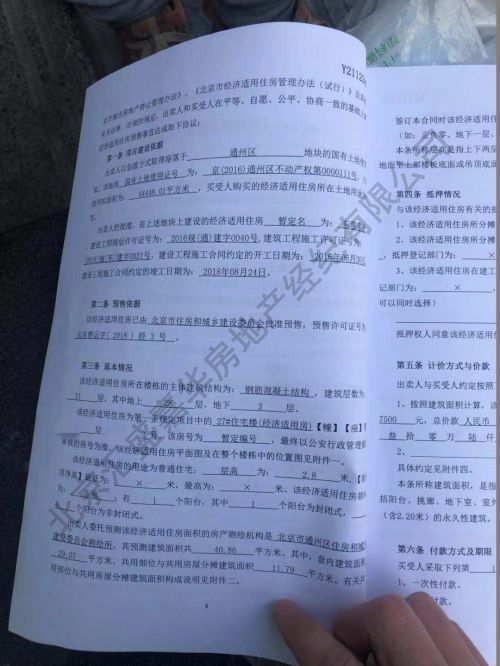 Y21125
济市城市房地产转让管理办法》、《北京市经济适用住房管理办法（试行）》及其
有关法律、法规的规定，出卖人和买受人在平等、自愿、公平、协商一致的基础上
经济适用住房预售事宜达成如下协议：
第一条 项目建设依据
出卖人以划拨方式取得座落于 通州区 地块的国有土地使
权。该地块 国有土地使用证号 为： 京(2016)通州区不动产权第0000111号，
使用权面积为： 44448.01平方米 ，买受人购买的经济适用住房所在土地用途
宅。
出卖人经批准，在上述地块上建设的经济适用住房 暂定名 为：
，建设工程规划许可证号为： 2016规(通)建字0040号，建筑工程施工许可证号为
[2016]施[通]建字0031号，建设工程施工合同约定的开工日期为：2016年08月30日
建设工程施工合同约定的竣工日期为：2018年08月24日。
第二条 预售依据
该经济适用住房已由 北京市住房和城乡建设委员会批准预售，预售许可证号为
京房售证字(2018)经3号 。
第三条 基本情况
该经济适用住房所在楼栋的主体建筑结构为： 钢筋混凝土结构 ，建筑层数为
31 层，其中地上 28 层，地下 3 层。
该经济适用住房为第一条规定项目中的 27#住宅楼(经济适用房) 【幢】【座】
层 号，该房号为 暂定编号 ，最终以公安行政管理部
审核的房号为准，该经济适用住房平面图及在整个楼栋中的位置图见附件一。
该经济适用住房的用途为普通住宅； 层高 为： 2.8 米，
顶净高】最低为： × 米，最高为： × 米。该经济适用住房朝
为： ；有 1 个阳台，其中 1 个阳台为封闭式，
个阳台为非封闭式。
出卖人委托预测该经济适用住房面积的房产测绘机构是 北京市通州区住房和城
建设委员会测绘所，其预测建筑面积共 40.86 平方米，其中，套内建筑面积
29.07 平方米，共用部位与共用房屋分摊建筑面积 11.79 平方米，有关共
用部位与共用房屋分摊建筑面积构成说明见附件二。
4
签订本合同时该经济适用住
（如：正负零、地下一层、
本条所称层高是指上下两层
地面至上部楼板底面或吊顶底
第四条 抵押情况
与该经济适用住房有关的抵
1、该经济适用住房所分摊
2、该经济适用住房所分摊
，抵押登记部门为： ×
3、该经济适用住房在建工
记部门为： ×
可以同时选择）
抵押权人同意该经济适用住
第五条 计价方式与价款
出卖人与买受人约定按照
1、按照建筑面积计算，该
7500 元，总价款 人民币
叁 拾 零 万 陆 仟
2、
具体约定见附件四。
本条所称建筑面积，是指
括阳台、挑廊、地下室、室外
(含2.20米)的永久性建筑。
第六条 付款方式及期限
买受人采取下列第 1
1、一次性付款。
付款。
北京汇盛嘉华房地产经纪有限公司